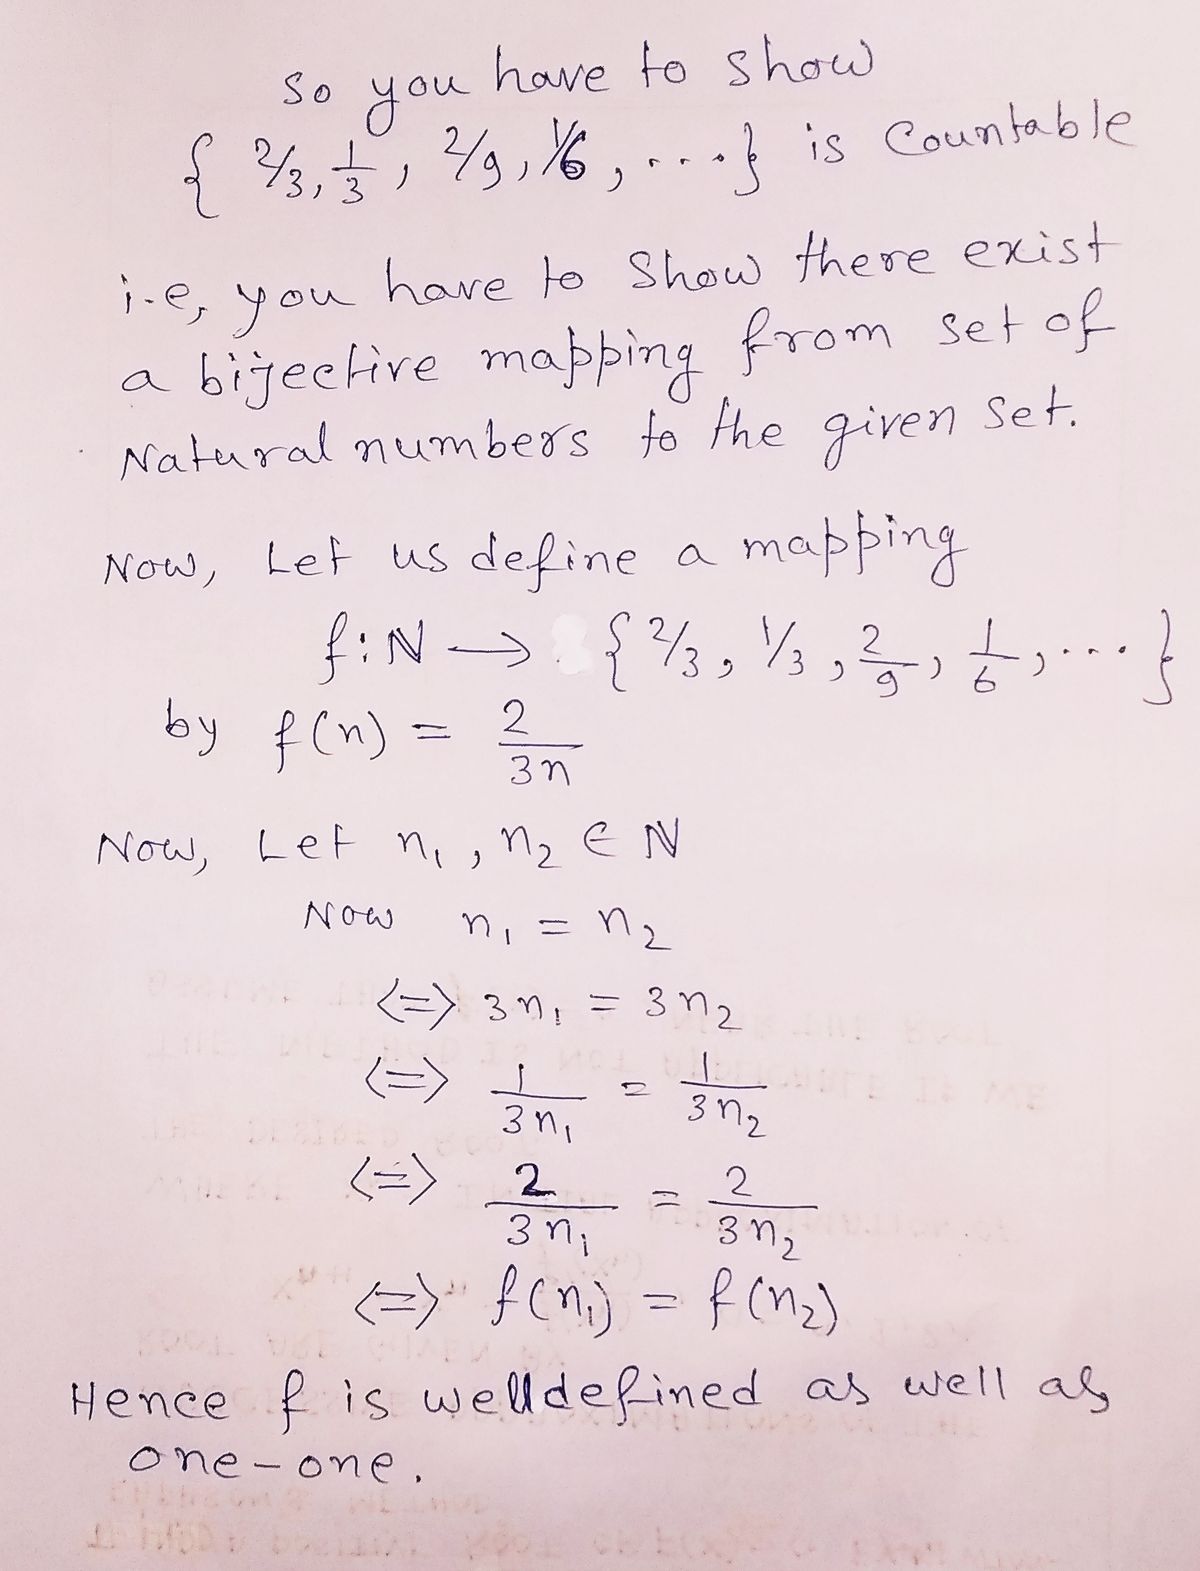 so you have to show
{ 2/3, 1/3, 2/9, 1/6, ...} is Countable
i-e, you have to show there exist
a bijective mapping from set of
Natural numbers to the given set.
Now, Let us define a mapping
f:ℕ → { 2/3, 1/3, 2/9, 1/6, .... }
by f(n) = 2/3n
Now, Let n₁, n₂ ∈ ℕ
Now n₁ = n₂
<=> 3n₁ = 3n₂
<=> 1/3n₁ = 1/3n₂
<=> 2/3n₁ = 2/3n₂
<=> f(n₁) = f(n₂)
Hence f is welldefined as well as
one-one.